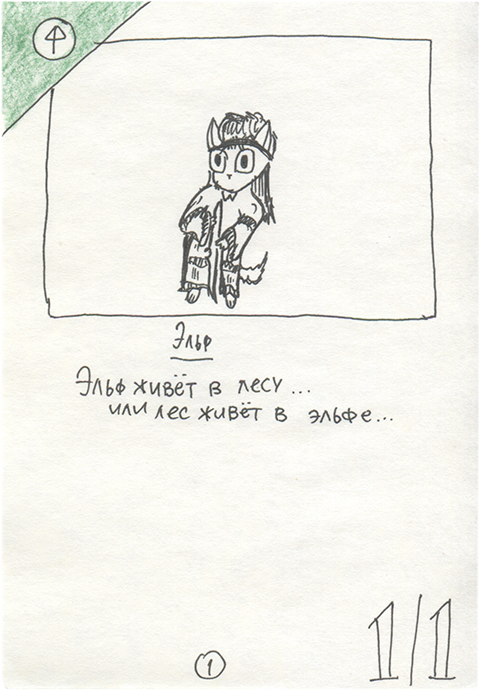 Эльф
Эльф живёт в лесу...
или лес живёт в эльфе...
1
1/1